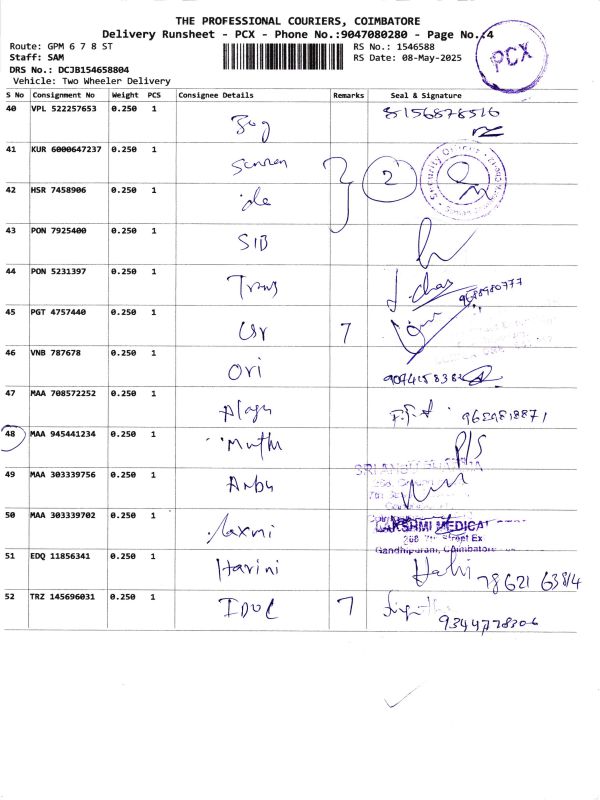 THE PROFESSIONAL COURIERS, COIMBATORE
Delivery Runsheet - PCX - Phone No.:9047080280 - Page No.:4
PCX
Route: GPM 6 7 8 ST
RS No.: 1546588
Staff: SAM
RS Date: 08-May-2025
DRS No.: DCJB154658804
Vehicle: Two Wheeler Delivery
S No Consignment No Weight PCS Consignee Details Remarks Seal & Signature
40 VPL 522257653 0.250 1 8156878516
41 KUR 6000647237 0.250 1 2 Security
42 HSR 7458906 0.250 1
43 PON 7925400 0.250 1 SIB
44 PON 5231397 0.250 1 Trans
45 PGT 4757440 0.250 1 7
46 VNB 787678 0.250 1 Ori
47 MAA 708572252 0.250 1
48 MAA 945441234 0.250 1 Muthu P/S
49 MAA 303339756 0.250 1 Anbu
50 MAA 303339702 0.250 1 laxmi LAKSHMI MEDICAL
Street Ex
Gandhipuram, Coimbatore
51 EDQ 11856341 0.250 1 Harini
52 TRZ 145696031 0.250 1 7 9344778306